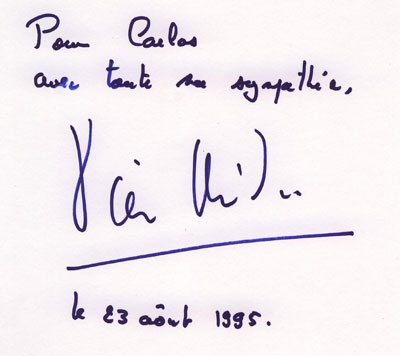 Pour Carlos
avec toute sa sympathie,
le 23 août 1995.